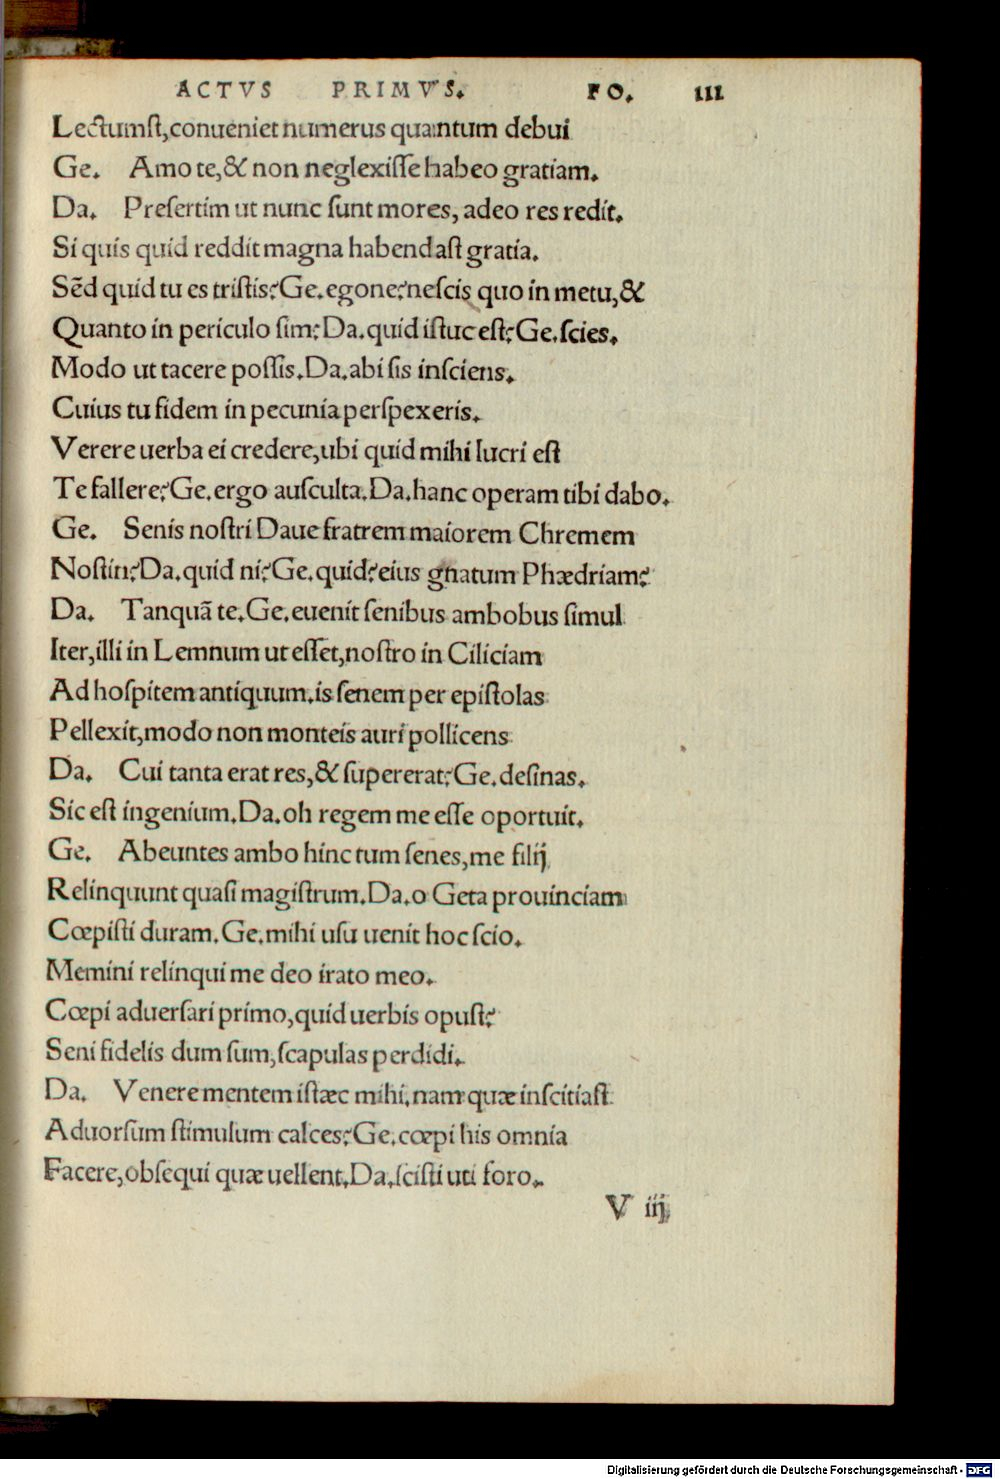 ACTVS PRIMVS. FO. III
Lectumst, conueniet numerus quantum debui
Ge. Amo te, & non neglexisse habeo gratiam.
Da. Presertim ut nunc sunt mores, adeo res redit.
Si quis quid reddit magna habendast gratia.
Sēd quid tu es tristis? Ge. egone? nescis quo in metu, &
Quanto in periculo sim? Da. quid istuc est? Ge. scies.
Modo ut tacere possis. Da. abi sis insciens.
Cuius tu fidem in pecunia perspexeris.
Verere uerba ei credere, ubi quid mihi lucri est
Te fallere? Ge. ergo ausculta. Da. hanc operam tibi dabo.
Ge. Senis nostri Daue fratrem maiorem Chremem
Nostin? Da. quid ni? Ge. quid? eius gnatum Phædriam?
Da. Tanquã te. Ge. euenit senibus ambobus simul
Iter, illi in Lemnum ut esset, nostro in Ciliciam
Ad hospitem antiquum, is senem per epistolas
Pellexit, modo non monteis auri pollicens
Da. Cui tanta erat res, & supererat? Ge. desinas.
Sic est ingenium. Da. oh regem me esse oportuit.
Ge. Abeuntes ambo hinc tum senes, me filij
Relinquunt quasi magistrum. Da. o Geta prouinciam
Cœpisti duram. Ge. mihi usu uenit hoc scio.
Memini relinqui me deo irato meo.
Cœpi aduersari primo, quid uerbis opust?
Seni fidelis dum sum, scapulas perdidi.
Da. Venere mentem istæc mihi. nam quæ inscitiast
Aduorsum stimulum calces? Ge. cœpi his omnia
Facere, obsequi quæ uellent. Da. scisti uti foro.
V iij
Digitalisierung gefördert durch die Deutsche Forschungsgemeinschaft - DFG